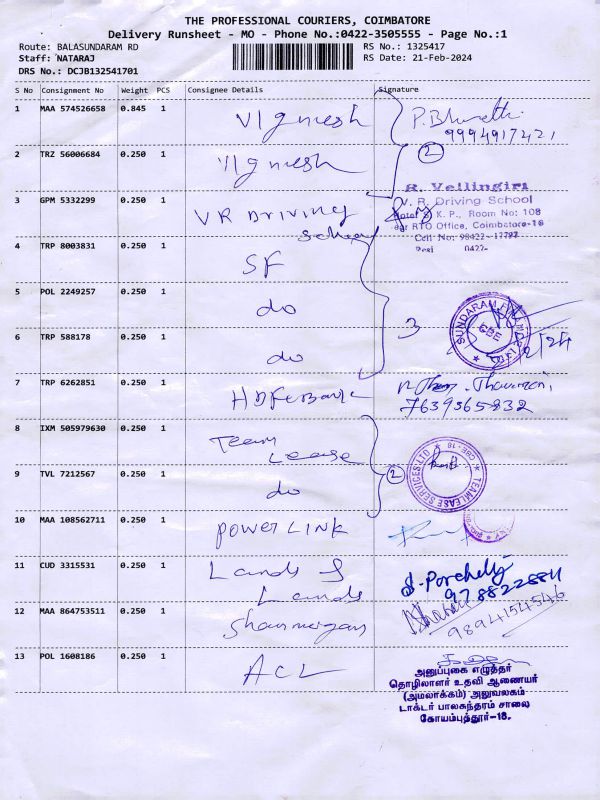 THE PROFESSIONAL COURIERS, COIMBATORE
Delivery Runsheet - MO - Phone No.:0422-3505555 - Page No.:1
Route: BALASUNDARAM RD
RS No.: 1325417
Staff: NATARAJ
RS Date: 21-Feb-2024
DRS No.: DCJB132541701
S No Consignment No Weight PCS Consignee Details Signature
1 MAA 574526658 0.845 1 Vignesh P. Bharathi
9994917421
2 TRZ 56006684 0.250 1 Vignesh 2
R. Vellingiri
3 GPM 5332299 0.250 1 VR Driving School
V. R. Driving School
K. P., Room No: 108
RTO Office, Coimbatore-18
Cell No: 98422-
0422-
4 TRP 8003831 0.250 1 SF
5 POL 2249257 0.250 1 do
SUNDARAM FINANCE LTD
CBE
6 TRP 588178 0.250 1 do 3
7 TRP 6262851 0.250 1 HDFC Bank
7639565832
8 IXM 505979630 0.250 1 Team Lease
TEAMLEASE SERVICES LTD
CBE-18
9 TVL 7212567 0.250 1 do 2
10 MAA 108562711 0.250 1 POWER LINK
11 CUD 3315531 0.250 1 Lands & Lands
9788228811
12 MAA 864753511 0.250 1 Shanmugam
9894154546
13 POL 1608186 0.250 1 ACL
அனுப்புகை எழுத்தர்
தொழிலாளர் உதவி ஆணையர்
(அமலாக்கம்) அலுவலகம்
டாக்டர் பாலசுந்தரம் சாலை
கோயம்புத்தூர்-18.